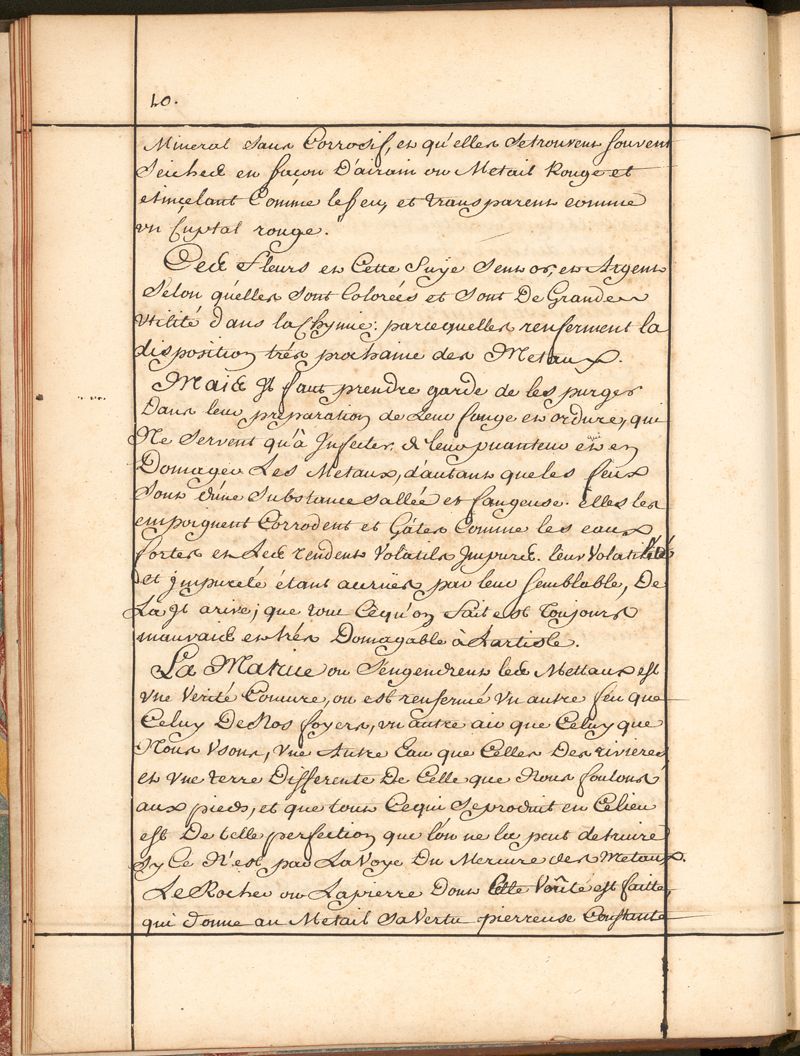 10.
Mineral sans Corrosif, et qu'elles se trouvent souvent
Seiches en façon D'airain ou Metail Rouge et
etinçelant Comme le feu, et transparent comme
un Cristal rouge.
Ces Fleurs et Cette Suÿe sent or, et Argent
Selon quelles sont Colorées et sont De Grandes
Vtilité dans la Chymie: parcequelles renferment la
disposition trés prochaine des Metaux.
Mais Jl faut prendre garde de les purger
Dans leur préparation de Leur fange et ordure, qui
Ne Servent qu'à Jnfecter de leur puanteur et en
Domager Les Metaux, d'autant que les feux
Sont d'une Substance sallée et fangeuse. elles les
empoignent Corrodent et Gâtes Comme les eaux
fortes et Les rendent Volatils Jmpurs. leur Volatilité
et jmpureté étant acrües par leur semblable, De
Là Jl arive; que tout Cequ'on fait est Toujours
mauvais et trés Domagable à L'artiste.
La Matrice ou S'engendrent les Mettaux est
Vne Verité Connue, ou est renfermé Vn autre feu que
Celuy De Nos foyers, vn autre air que Celuy que
Nous Vsons, Vne Autre Eau que Celles Des rivieres
et Vne terre Differente De Celle que Nous foulons
aux pieds, et que tout Cequi Se produit en Celieu
est De telle perfection que l'on ne la peut detruire
Sy Ce N'est par La Voye Du Mercure des Metaux.
Le Rocher ou La pierre Dont Cette Voûte est faitte,
qui donne au Metail Sa Vertu pierreuse Constante